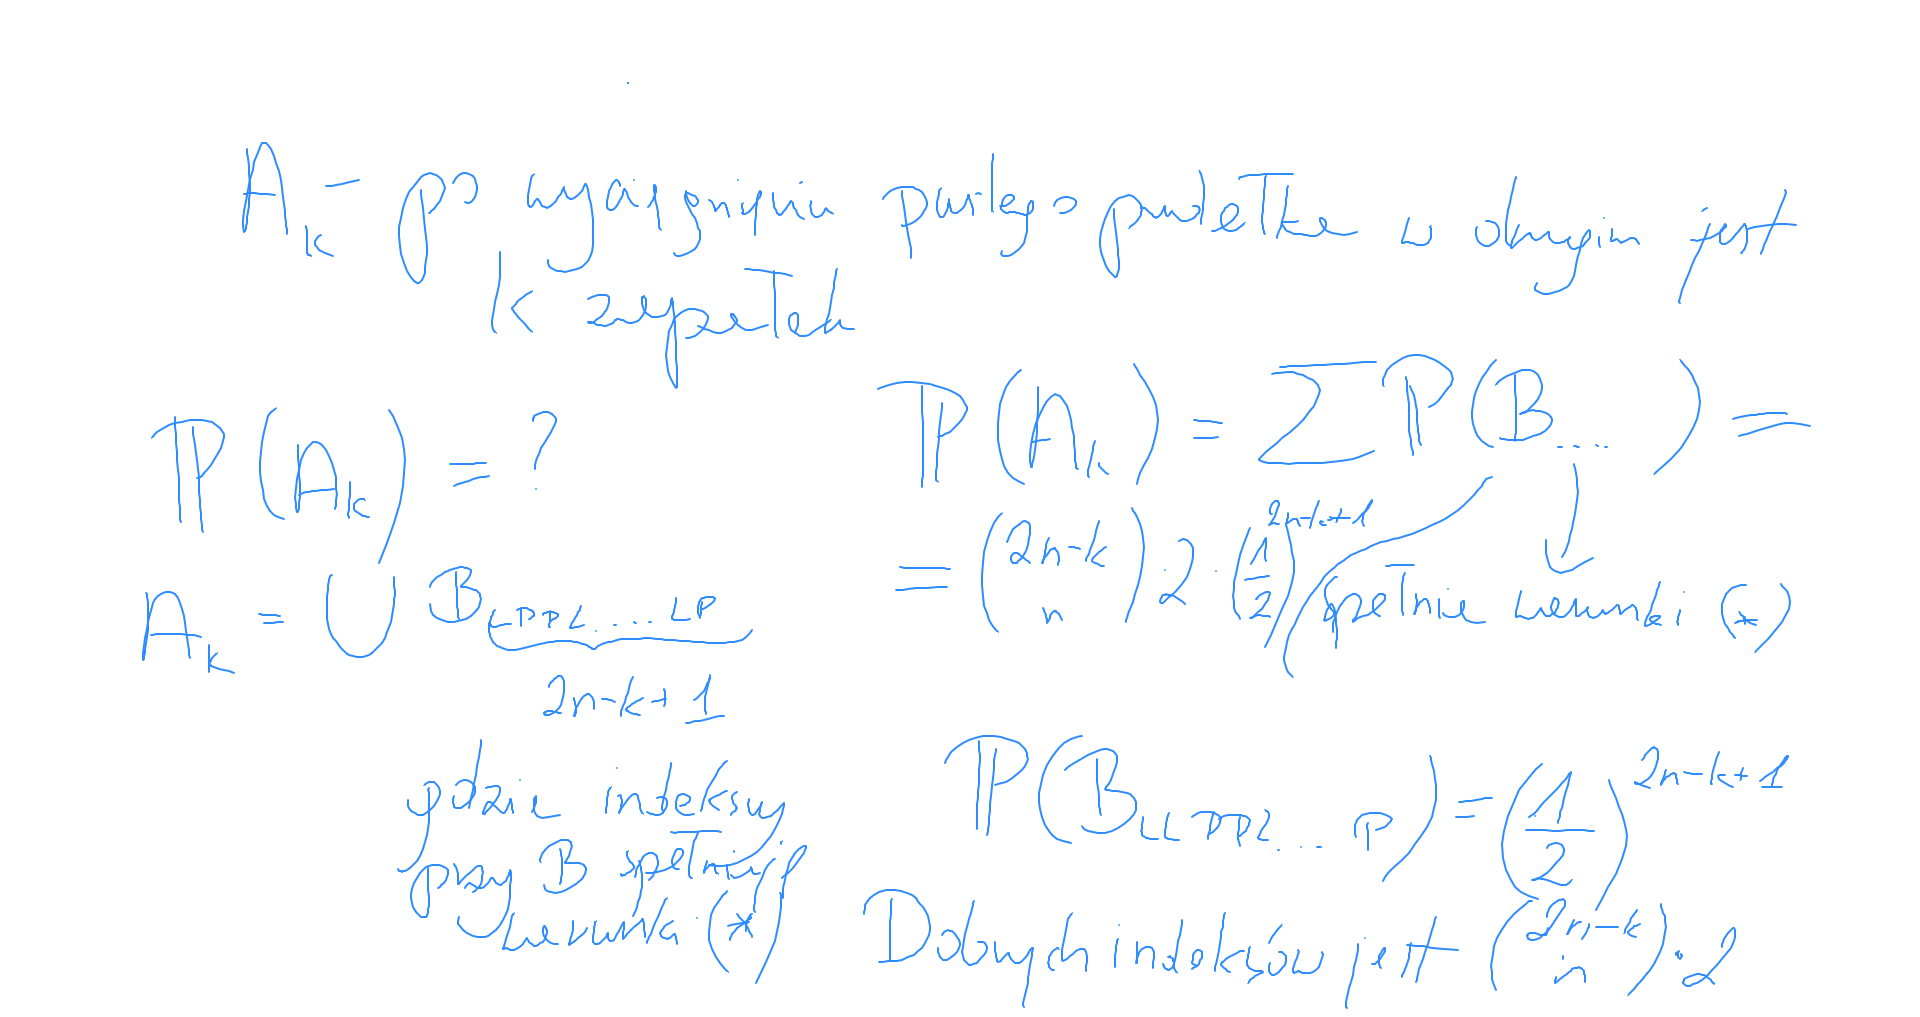 A_k - po wyciągnięciu pustego pudełka w drugim jest
k zapałek
P(A_k) = ?
A_k = ∪ B_{LPPL....LP}
2n-k+1
gdzie indeksy
przy B spełniają
warunki (*)
P(A_k) = Σ P(B_{....}) =
= \binom{2n-k}{n} · 2 · (1/2)^{2n-k+1}
spełnia warunki (*)
P(B_{LLPPL....P}) = (1/2)^{2n-k+1}
Dobrych indeksów jest \binom{2n-k}{n} · 2